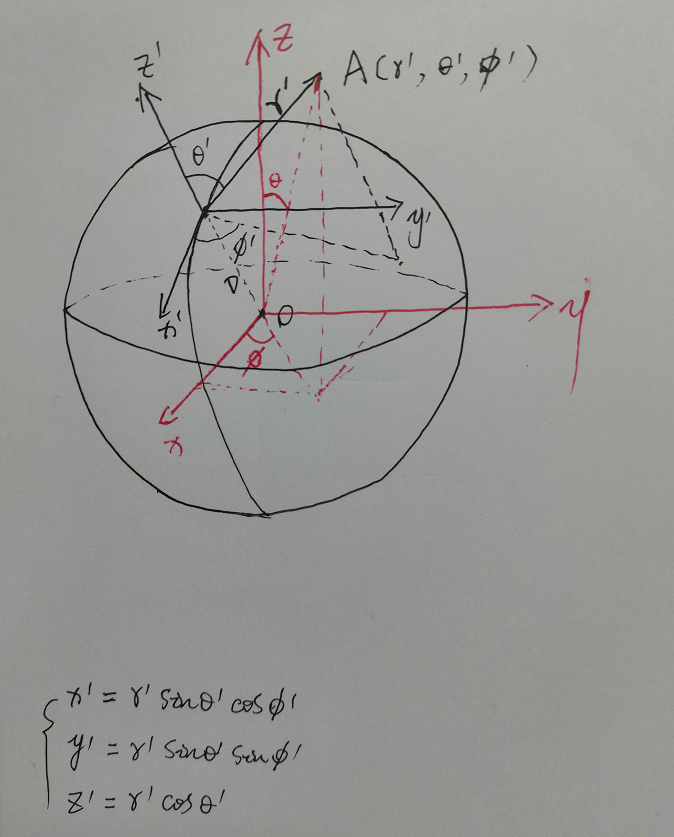 z
z'
r'
A(r', θ', ϕ')
θ'
θ
y'
ϕ'
D
x'
O
y
ϕ
x
x' = r' sinθ' cosϕ'
y' = r' sinθ' sinϕ'
z' = r' cosθ'